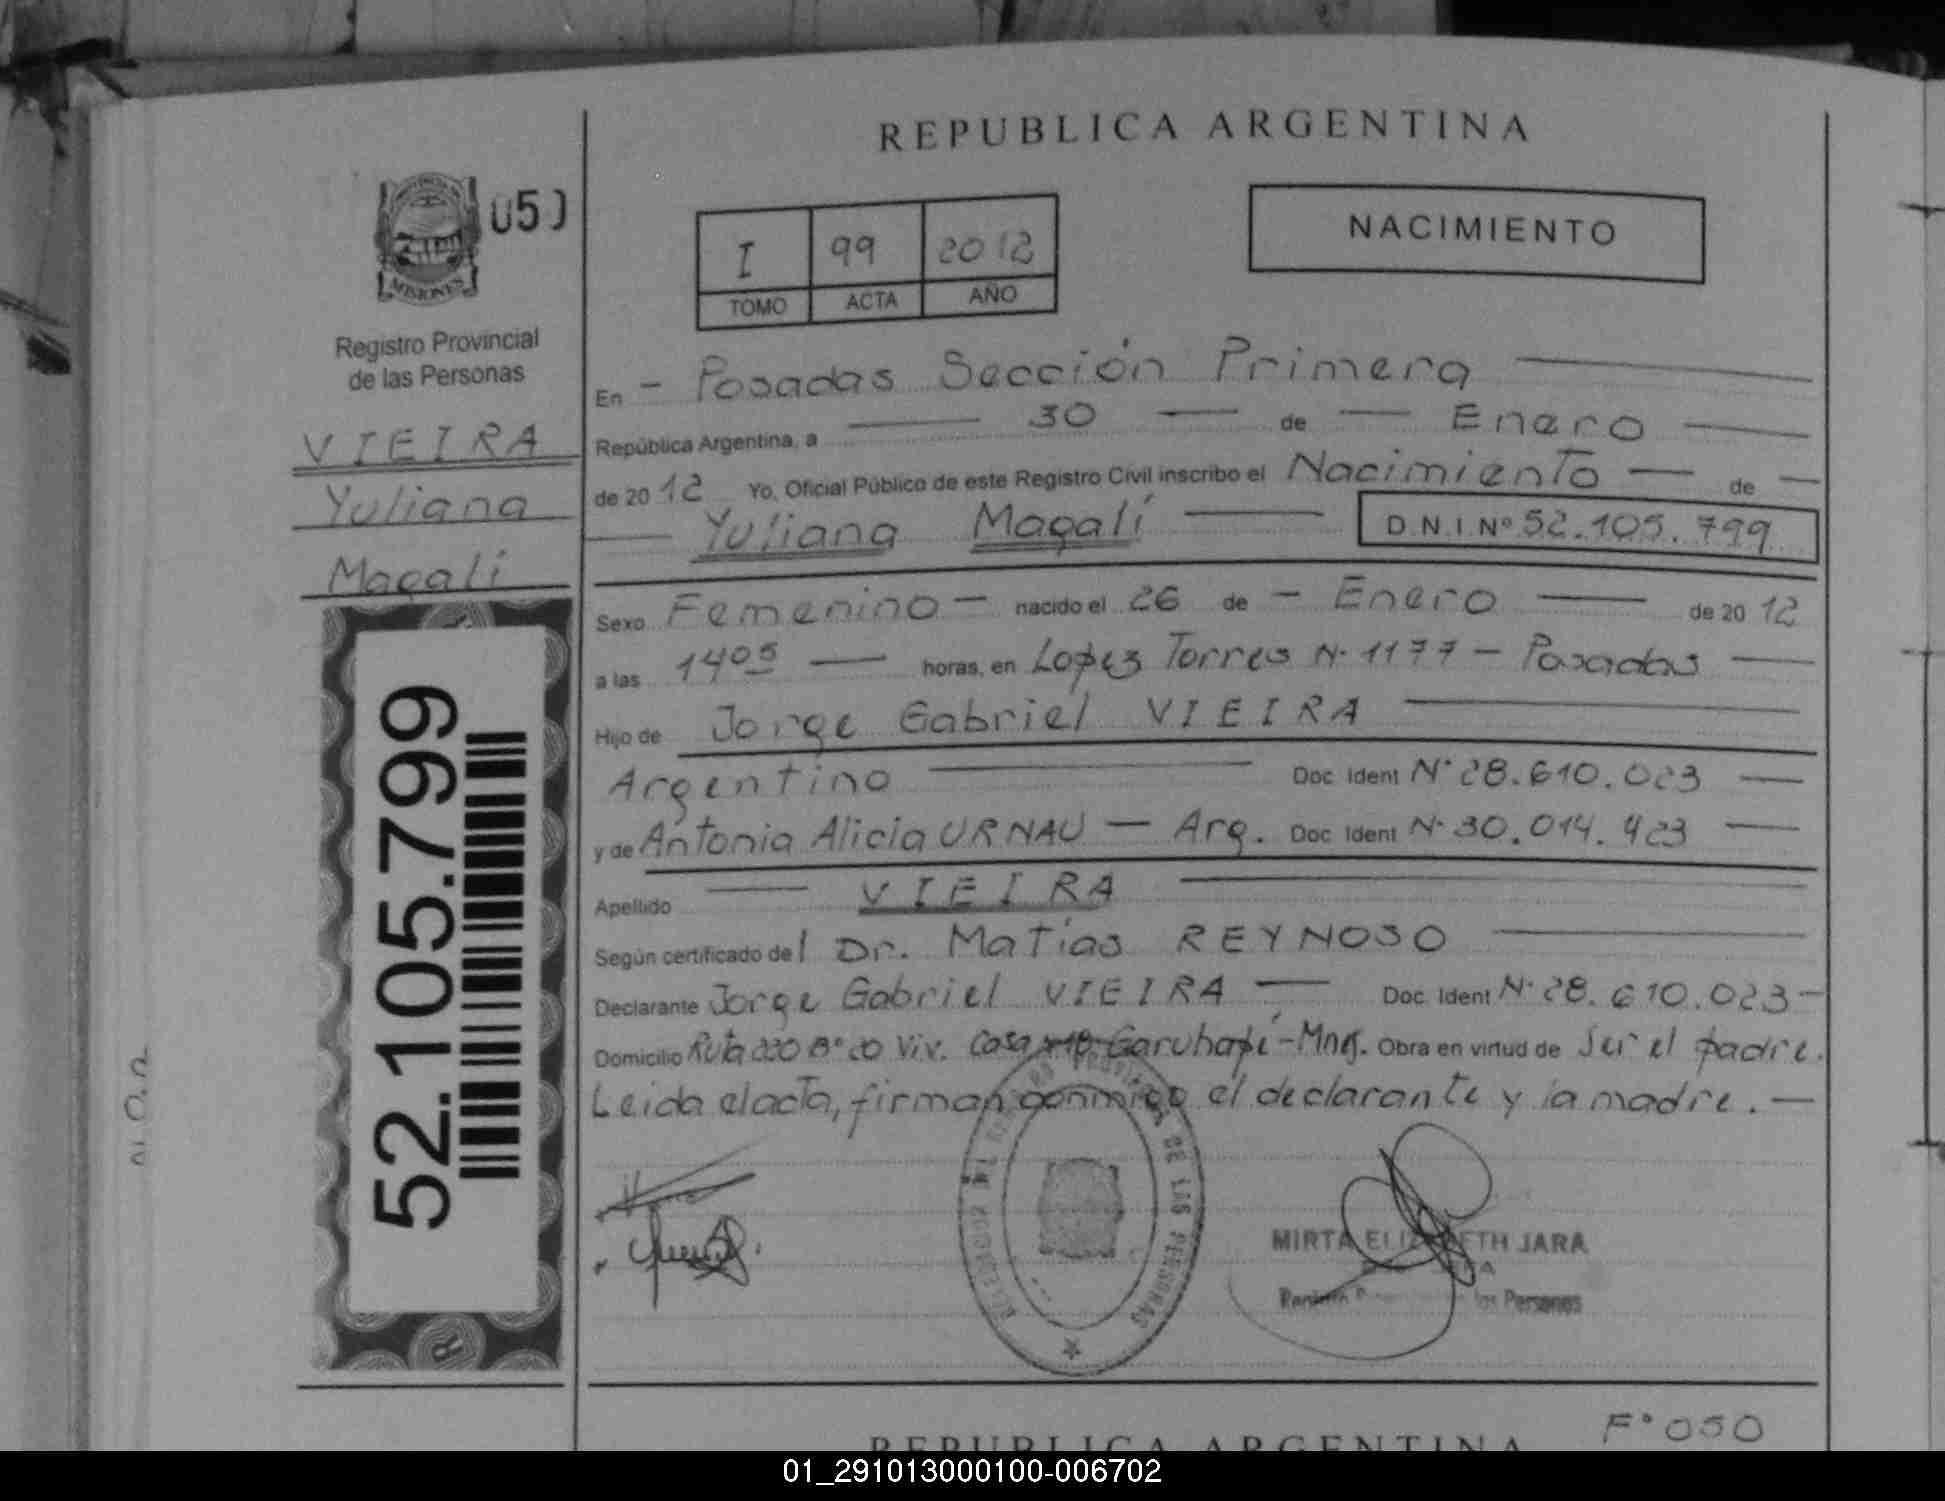 REPUBLICA ARGENTINA
MISIONES
050
Registro Provincial
de las Personas
VIEIRA
Yuliana
Magali
52.105.799
I 99 2012
TOMO ACTA AÑO
NACIMIENTO
En - Posadas Sección Primera
República Argentina, a 30 de Enero
de 2012 Yo, Oficial Público de este Registro Civil inscribo el Nacimiento de
Yuliana Magalí D.N.I.Nº 52.105.799
Sexo Femenino - nacido el 26 de - Enero de 2012
a las 14 05 horas, en Lopez Torres N. 1177 - Posadas
Hijo de Jorge Gabriel VIEIRA
Argentino Doc. Ident Nº 28.610.023
y de Antonia Alicia URNAU - Arg. Doc. Ident Nº 30.014.423
Apellido VIEIRA
Según certificado del Dr. Matías REYNOSO
Declarante Jorge Gabriel VIEIRA Doc. Ident Nº 28.610.023 -
Domicilio Ruta 220 Bº 20 Viv. Casa Garuhapé - Mnes. Obra en virtud de Ser el padre.
Leida el acta, firman conmigo el declarante y la madre. -
DE LAS PERSONAS
MIRTA ELIZABETH JARA
las Personas
Fº 050
REPUBLICA ARGENTINA
01_291013000100-006702